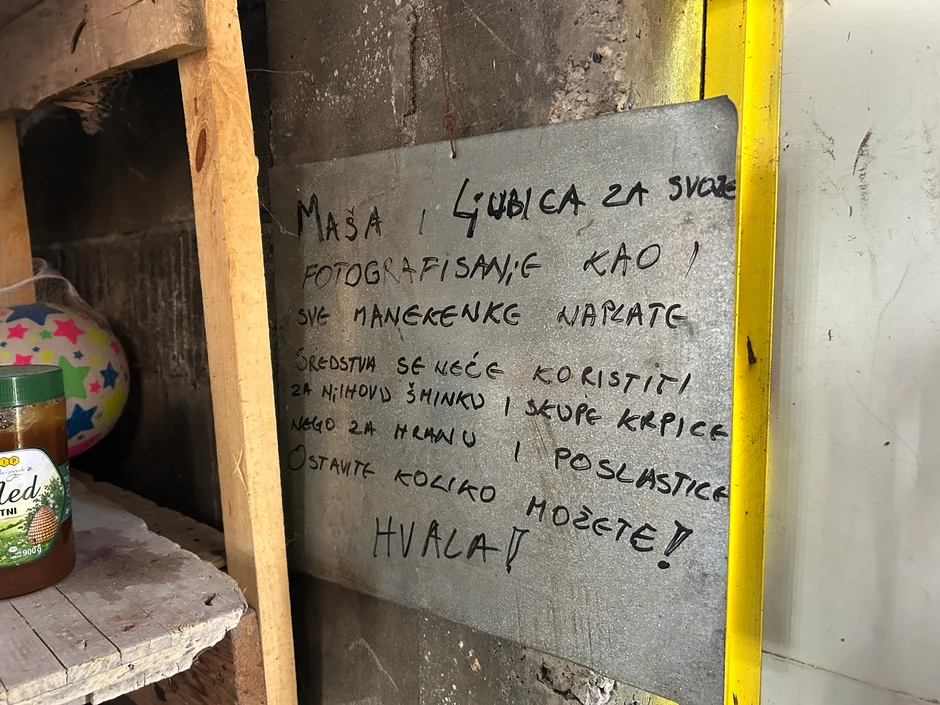 MAŠA I LJUBICA ZA SVOJE
FOTOGRAFISANJE KAO I
SVE MANEKENKE NAPLATE
SREDSTVA SE NEĆE KORISTITI
ZA NJIHOVU ŠMINKU I SKUPE KRPICE
NEGO ZA HRANU I POSLASTICE
OSTAVITE KOLIKO MOŽETE!
HVALA!
Med
900g